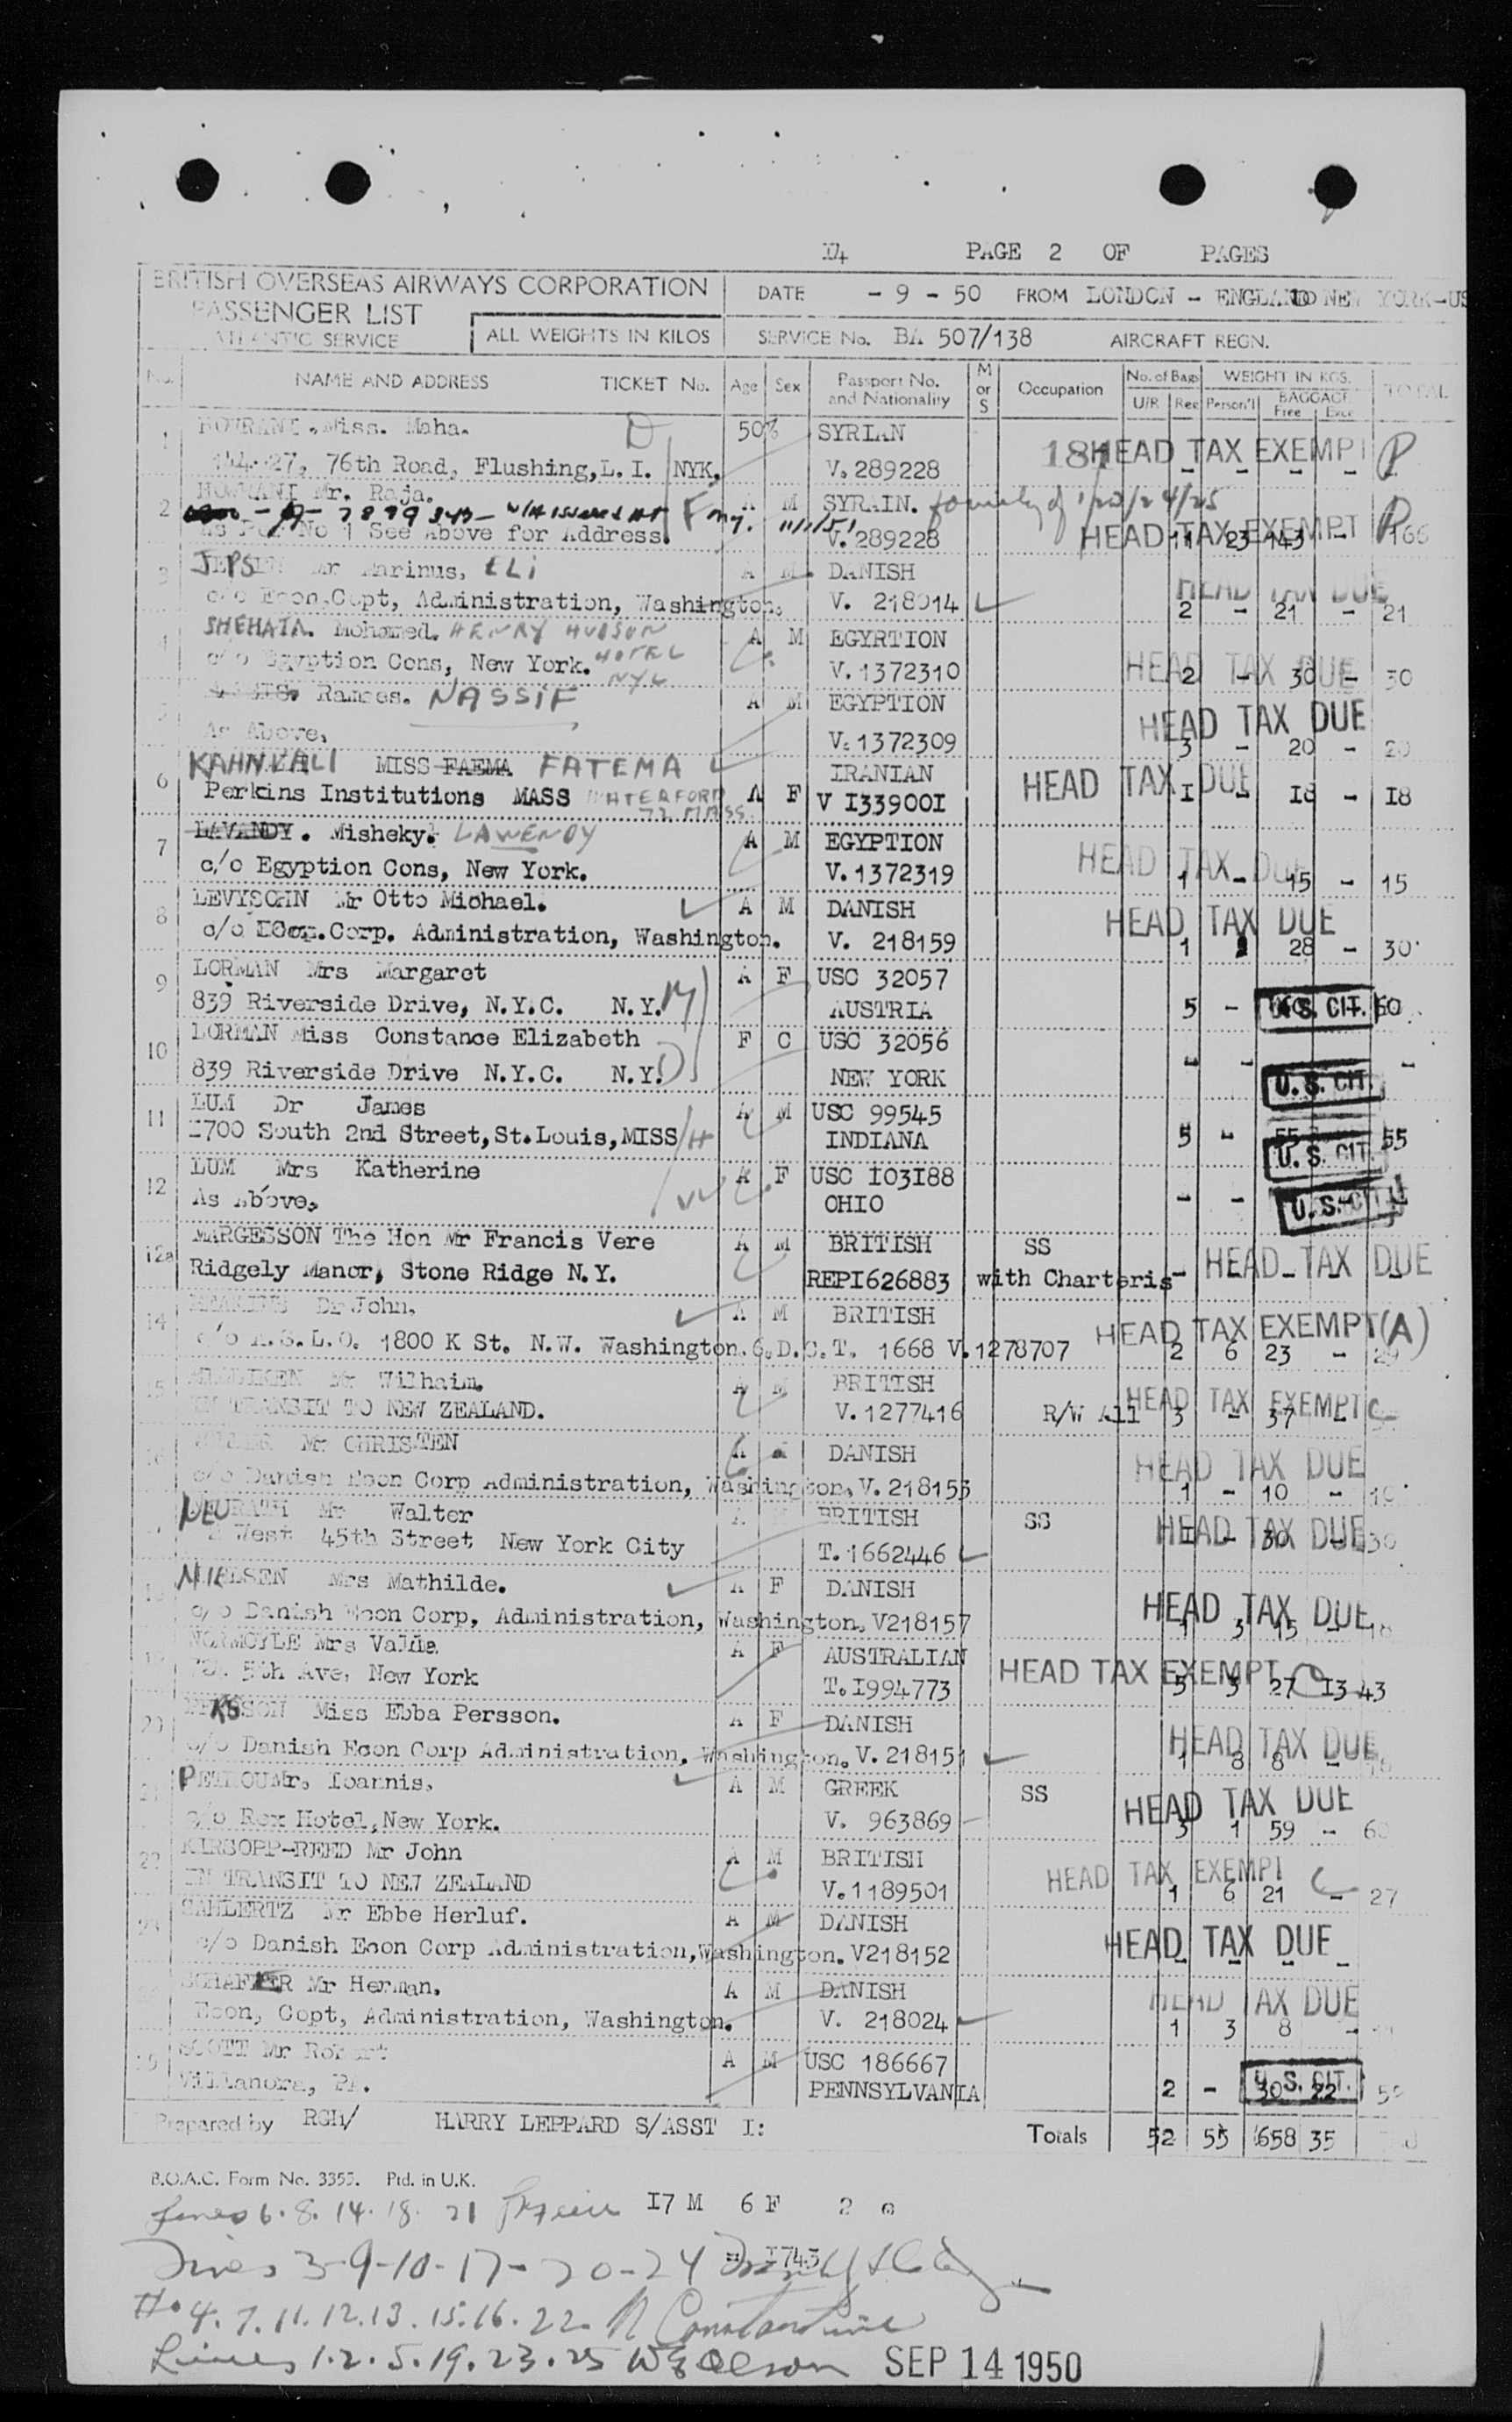 PAGE 2 OF PAGES
BRITISH OVERSEAS AIRWAYS CORPORATION
PASSENGER LIST
ATLANTIC SERVICE
ALL WEIGHTS IN KILOS
DATE - 9 - 50 FROM LONDON - ENGLAND TO NEW YORK-US
SERVICE No. BA 507/138 AIRCRAFT REGN.
No. NAME AND ADDRESS TICKET No. Age Sex Passport No. and Nationality M or S Occupation No. of Bags U/R Reg WEIGHT IN KGS. Person'l BAGGAGE Free Exce TOTAL
1 HOURANI, Miss. Maha. D 50% SYRIAN
76th Road, Flushing, L. I. NYK. V. 289228 HEAD TAX EXEMPT
2 HOURANI Mr. Raja. A M SYRAIN.
See Above for Address. V. 289228 HEAD TAX EXEMPT 166
3 Mr Marinus, ELI A M. DANISH
c/o Econ.Copt, Administration, Washington. V. 218014 HEAD TAX DUE 2 - 21 - 21
4 SHEHATA. Mohamed. HENRY HUDSON HOTEL NYC A M EGYRTION
c/o Egyption Cons, New York. V. 1372310 HEAD TAX DUE 2 - 30 - 30
5 Ramses. NASSIF A M EGYPTION
As Above, V. 1372309 HEAD TAX DUE 3 - 20 - 20
6 KAHNVALI MISS FAEMA FATEMA IRANIAN
Perkins Institutions MASS WATERFORD 72 MASS. A F V I33900I HEAD TAX DUE I - I8 - I8
7 LAVANDY. Misheky. LAWENDY A M EGYPTION
c/o Egyption Cons, New York. V. 1372319 HEAD TAX DUE 1 - 15 - 15
8 LEVYSOHN Mr Otto Michael. A M DANISH
c/o Corp. Administration, Washington. V. 218159 HEAD TAX DUE 1 28 - 30
9 LORMAN Mrs Margaret A F USC 32057
839 Riverside Drive, N.Y.C. N.Y. M AUSTRIA 5 - U.S. CIT. 60
10 LORMAN Miss Constance Elizabeth F C USC 32056
839 Riverside Drive N.Y.C. N.Y. D NEW YORK - - U.S. CIT. -
11 LUM Dr James A M USC 99545
1700 South 2nd Street, St. Louis, MISS H INDIANA 5 - 55 U.S. CIT. 55
12 LUM Mrs Katherine A F USC I03I88
As Above. W OHIO - - U.S. CIT.
12a MARGESSON The Hon Mr Francis Vere A M BRITISH SS
Ridgely Manor, Stone Ridge N.Y. REPI626883 with Charteris - HEAD TAX DUE
14 Dr John. A M BRITISH
1800 K St. N.W. Washington. 6. D.C. T. 1668 V. 1278707 HEAD TAX EXEMPT (A) 2 6 23 - 29
15 Mr Wilhaim. A M BRITISH
IN TRANSIT TO NEW ZEALAND. V. 1277416 R/W All HEAD TAX EXEMPT C 3 - 37
16 Mr CHRISTEN A M DANISH
c/o Danish Econ Corp Administration, Washington, V. 218153 HEAD TAX DUE 1 - 10 -
NEURATH Mr Walter A BRITISH SS
West 45th Street New York City T. 1662446 HEAD TAX DUE I - 30 30
NIELSEN Mrs Mathilde. A F DANISH
c/o Danish Econ Corp, Administration, Washington. V218157 HEAD TAX DUE 1 3 15 - 18
19 NORMOYLE Mrs Valdie A F AUSTRALIAN
5th Ave, New York T. I994773 HEAD TAX EXEMPT C 5 3 27 I3 43
20 Miss Ebba Persson. A F DANISH
c/o Danish Econ Corp Administration, Washington. V. 218151 HEAD TAX DUE 1 8 8 -
21 PETROU Mr. Ioannis, A M GREEK SS
c/o Rex Hotel, New York. V. 963869 HEAD TAX DUE 3 1 59 - 60
22 KIRSOPP-REED Mr John A M BRITISH
IN TRANSIT TO NEW ZEALAND V. 1189501 HEAD TAX EXEMPT C 1 6 21 - 27
23 SAHLERTZ Mr Ebbe Herluf. A M DANISH
c/o Danish Econ Corp Administration, Washington. V218152 HEAD TAX DUE - - - -
Mr Herman. A M DANISH
Econ, Copt, Administration, Washington. V. 218024 HEAD TAX DUE 1 3 8 -
SCOTT Mr Robert A M USC 186667
Villanora, PA. PENNSYLVANIA 2 - U.S. CIT. 30 22
Prepared by RGH/ HARRY LEPPARD S/ASST I: Totals 52 55 658 35
B.O.A.C. Form No. 3353. Ptd. in U.K.
Lines 6. 8. 14. 18. 21 I7 M 6 F 2
Lines 3-9-10-17-20-24 I743
4. 7. 11. 12. 13. 15. 16. 22. Constantine
Lines 1. 2. 5. 19. 23. 25 W E Olson SEP 14 1950